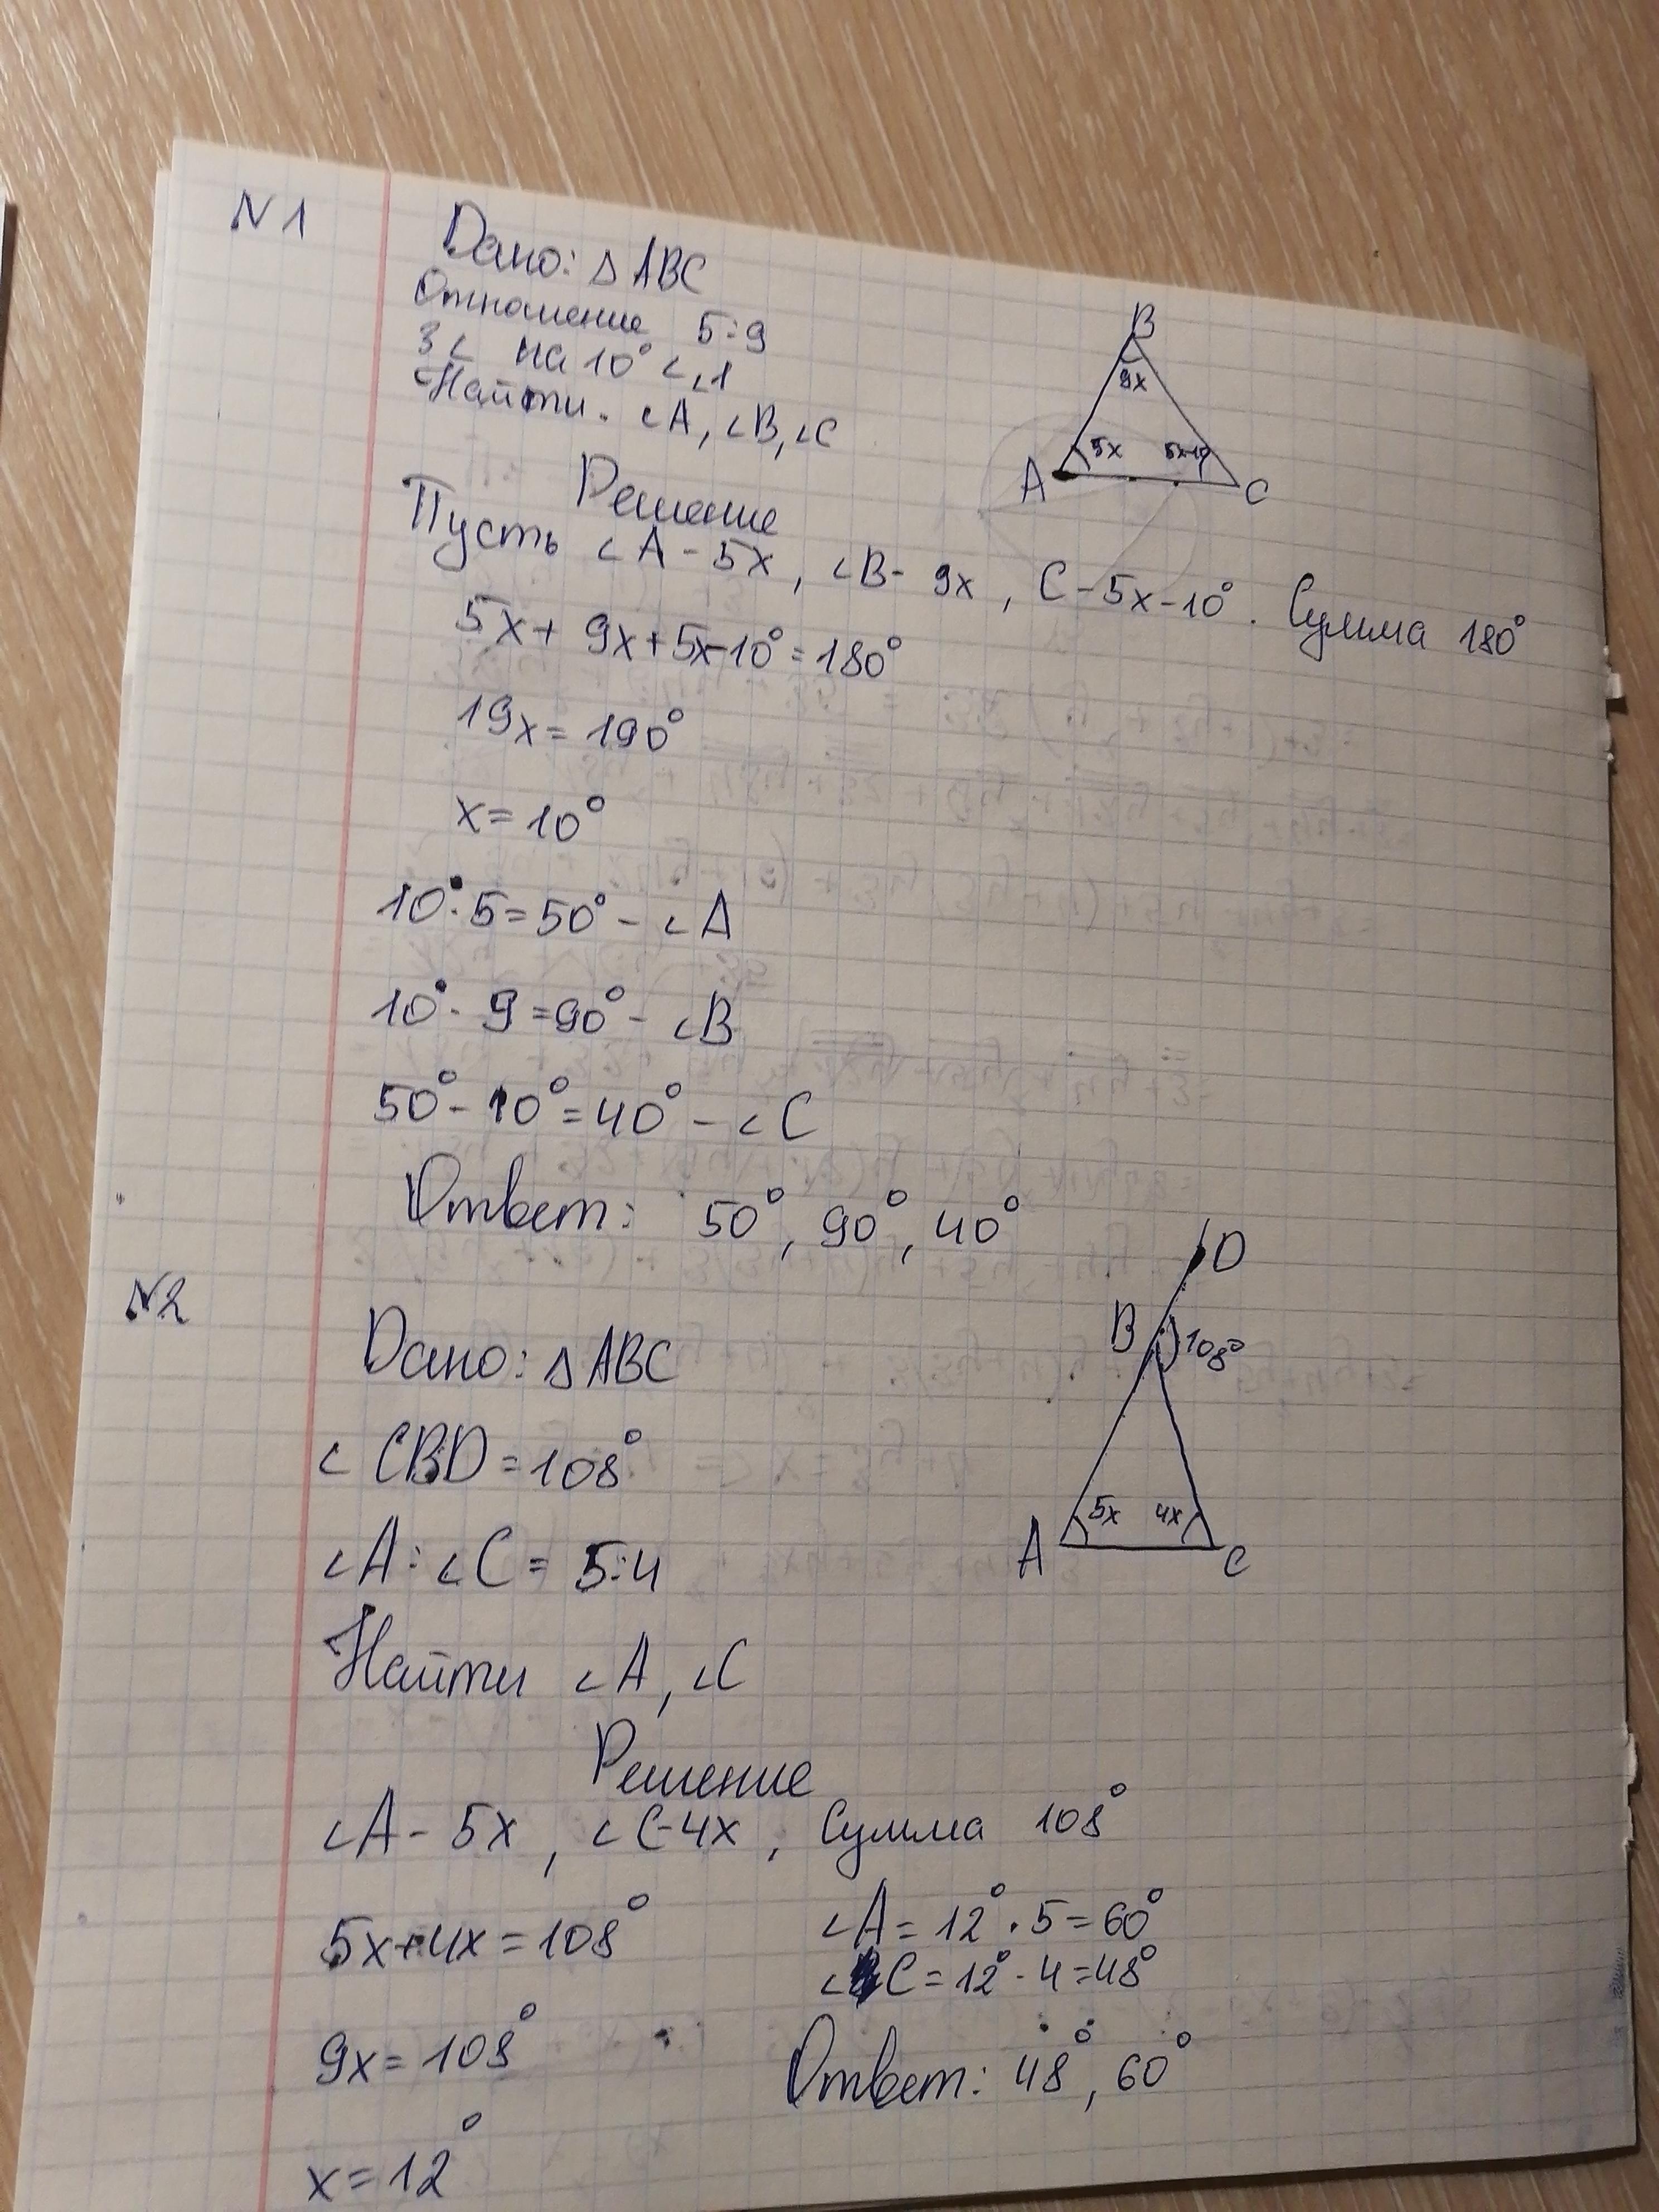 N 1
Дано: △ ABC
Отношение 5:9
3∠ на 10° < ∠1
Найти. ∠A, ∠B, ∠C
B
9x
5x
5x-10
A
C
Решение
Пусть ∠A - 5x, ∠B - 9x, C - 5x-10°. Сумма 180°
5x + 9x + 5x-10° = 180°
19x = 190°
x = 10°
10° · 5 = 50° - ∠A
10° · 9 = 90° - ∠B
50° - 10° = 40° - ∠C
Ответ: 50°, 90°, 40°
N2
Дано: △ ABC
∠ CBD = 108°
∠A : ∠C = 5:4
Найти ∠A, ∠C
D
B
108°
5x
4x
A
C
Решение
∠A - 5x, ∠C-4x, Сумма 108°
5x+4x = 108°
9x = 108°
x = 12°
∠A = 12° · 5 = 60°
∠C = 12° · 4 = 48°
Ответ: 48°, 60°